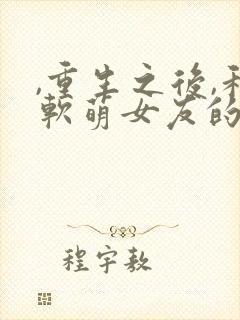 ,重生之後,和
軟萌女友的
程宇敖